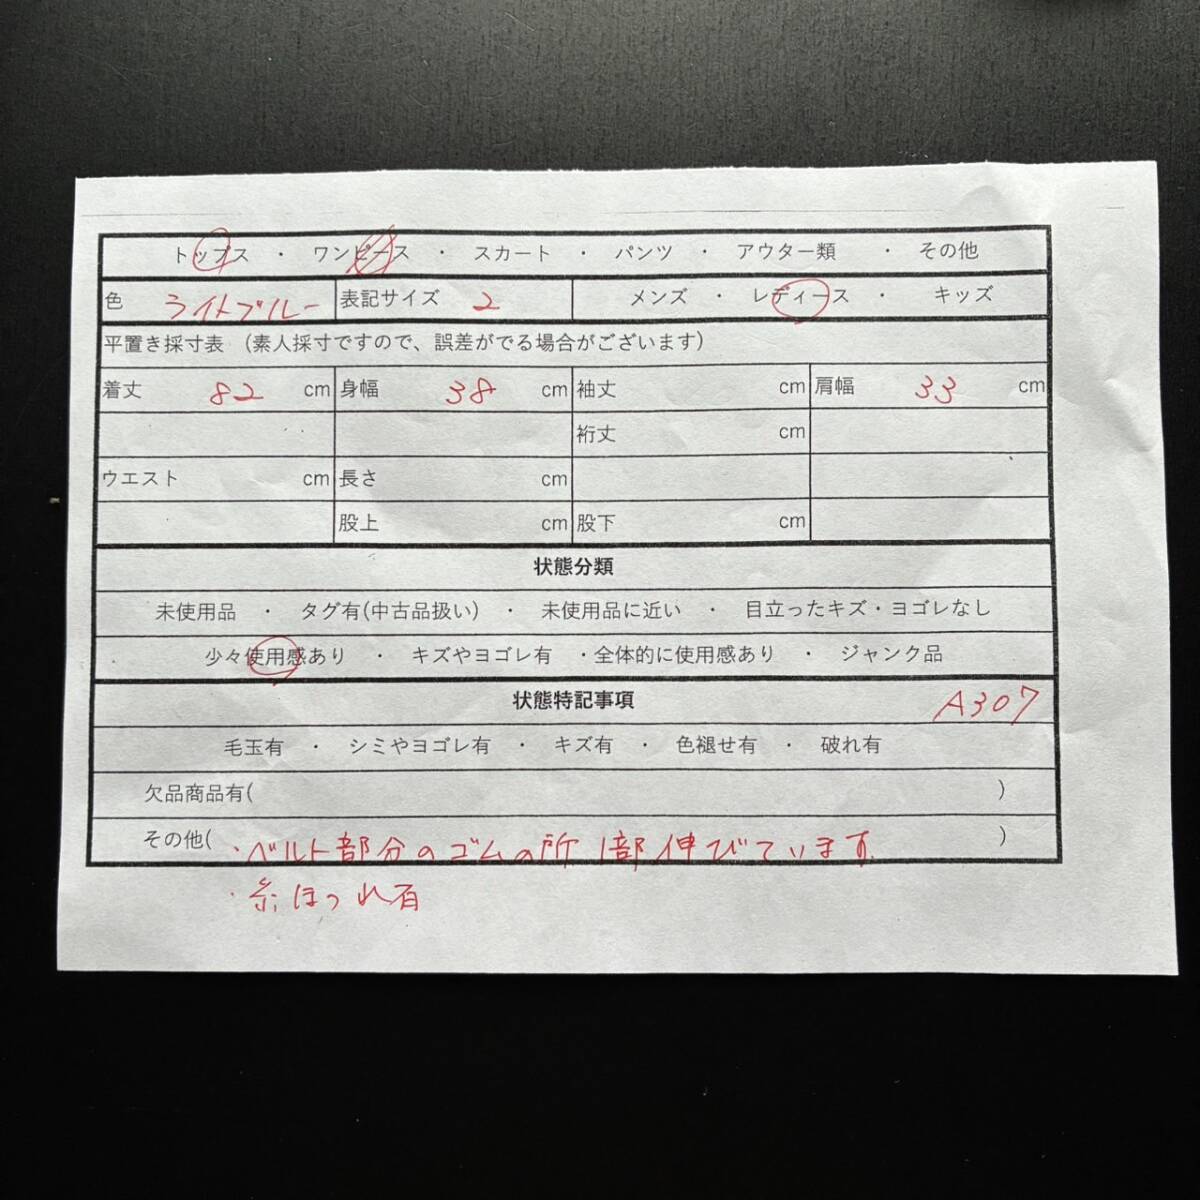 トップス ・ ワンピース ・ スカート ・ パンツ ・ アウター類 ・ その他
色 ライトブルー 表記サイズ 2 メンズ ・ レディース ・ キッズ
平置き採寸表 (素人採寸ですので、誤差がでる場合がございます)
着丈 82 cm 身幅 38 cm 袖丈 cm 肩幅 33 cm
裄丈 cm
ウエスト cm 長さ cm
股上 cm 股下 cm
状態分類
未使用品 ・ タグ有(中古品扱い) ・ 未使用品に近い ・ 目立ったキズ・ヨゴレなし
少々使用感あり ・ キズやヨゴレ有 ・全体的に使用感あり ・ ジャンク品
状態特記事項 A307
毛玉有 ・ シミやヨゴレ有 ・ キズ有 ・ 色褪せ有 ・ 破れ有
欠品商品有( )
その他( ・ベルト部分のゴムの所1部伸びています )
・糸ほつれ有